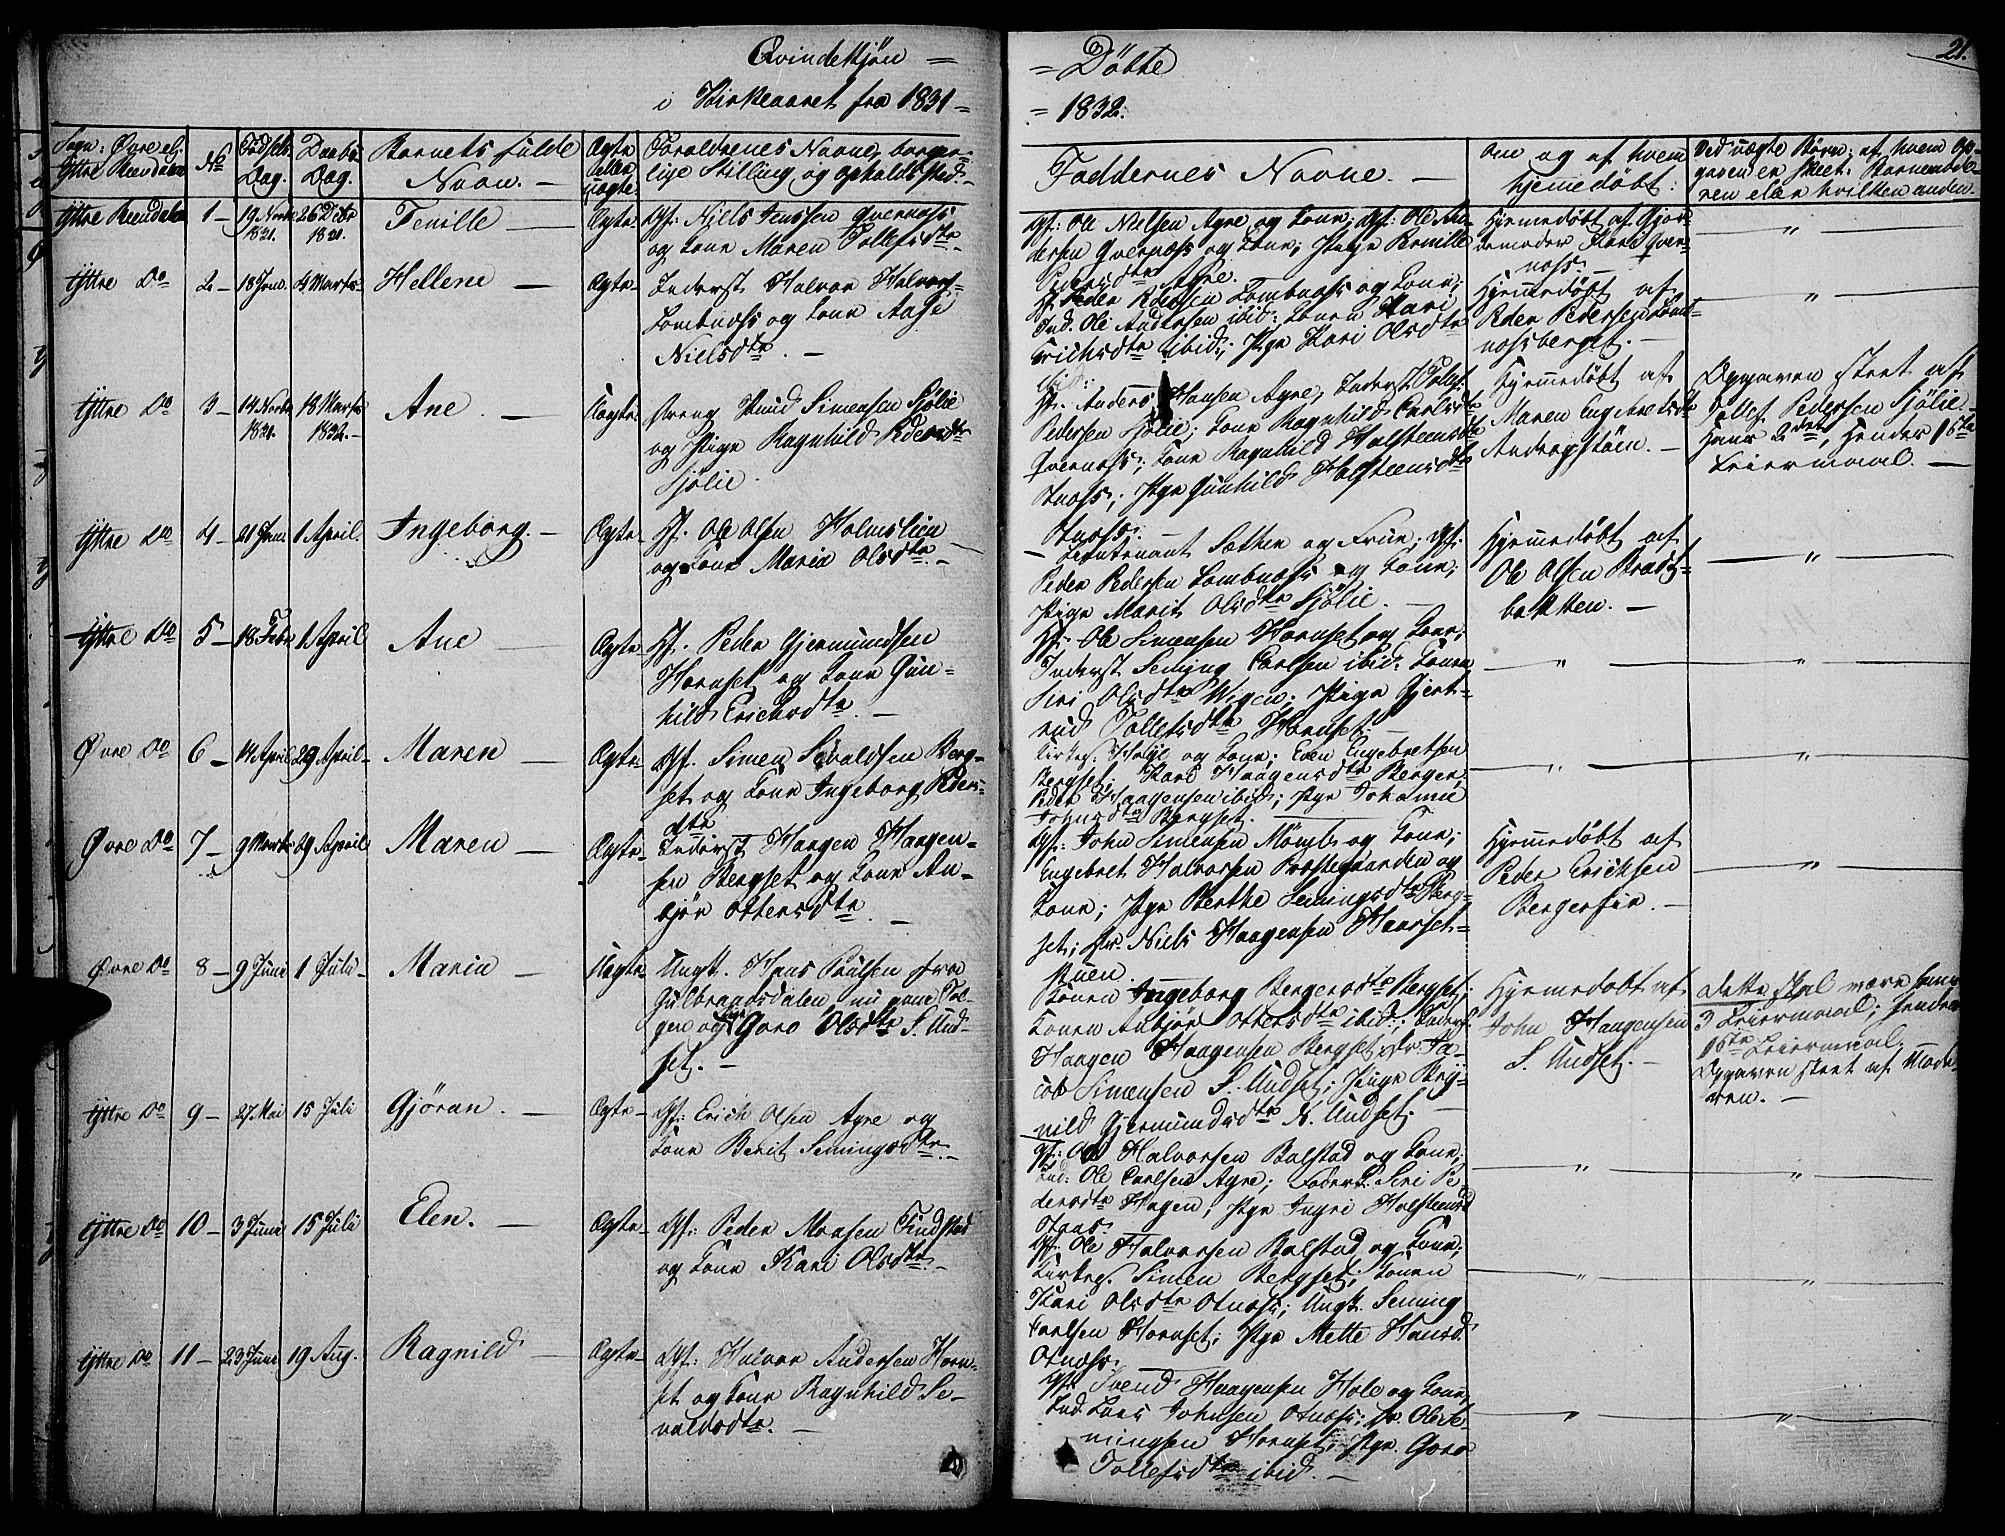 Qvindekjøn =
= Döbte
21.
i Kirkeaaret fra 1831 =
= 1832.
Sogn: Øvre el. Yttre Rendalen
No
Födsels Dag.
Daabs Dag.
Barnets fulde Navn. —
Ægte eller uægte
Forældrenes Navne, borgerlige Stilling og Opholdssted. —
Faddernes Navne. —
Om og af hvem hjemedøbt:
Ved uægte Børn; af hvem Opgaven er skeet: Barnemoderen eller hvilken anden.
Yttre Rendalen 1 — 19 Novbr 1831. 26 Decbr 1831. Pernille — Ægte
Gf: Niels Jenssen Qvernæss
og Kone Maren Tollefsdtr. —
Gf: Ole Nielsen Agre og Kone; Gf: Ole An-
dersen Qvernæss og Kone; Pige Pernille
Pedersdtr Agre.
Hjemmedøbt af Gjor-
demoder Kari Qver-
næss. —
"
Yttre Do 2 — 18 Jan. 4 Marts Hellene — Ægte
Inderst Halvor Halvors.
Lombnæss og Kone Aase
Nielsdtr. —
Gf. Peder Pedersen Lombnæss og Kone;
Ind. Ole Andersen ibid: Konen Kari
Erichsdtr ibid:; Pige Kari Olsdtr
ibid:
Hjemmedøbt af
Peder Pedersen Lomb-
næssberget. —
"
Yttre Do 3 — 14 Novbr 1831. 18 Marts 1832. Ane. — Uægte
Dreng Knud Simensen Sjölie
og Pige Ragnhild Pedersdtr
Sjölie.
Gf. Anders Hansen Agre; Inderst Tollef
Pedersen Sjölie; Kone Ragnhild Carlsdtr
Qvernæss; Kone Ragnhild Holsteensdtr
Otnæss; Pige Gunhild Holsteensdtr
Otnæss. —
Hjemmedøbt af
Maren Engebretsdtr
Andragstöen. —
Opgaven skeet af
Tollef Pedersen Sjölie
Hans 2det, Hendes 1ste
Leiermaal. —
Yttre Do 4 — 21 Jan. 1 April Ingeborg. — Ægte
Gf. Ole Olsen Holmslien
og Kone Maria Olsdtr. —
Lieutenant Sæther og Frue; Gf.
Peder Pedersen Lombnæss og Kone;
Pige Marit Olsdtr Sjölie. —
Hjemmedøbt af
Ole Olsen Bradt-
bakken. —
"
Yttre Do 5 — 18 Febr 1 April Ane — Ægte
Gf. Peder Gjermundsen
Hornset og Kone Gun-
hild Erichsdtr. —
Gf: Ole Simensen Hornset og Kone;
Inderst Seming Carlsen ibid: Konen
Siri Olsdtr Wigen; Pige Gjert-
rud Tollefsdtr Hornset. —
"
"
Øvre Do 6 — 14 April 29 April Maren — Ægte
Gf. Simen Sevaldsen Berg-
set og Kone Ingeborg Peders-
dtr
Kirkes. Helge og Kone; Even Engebretsen
Bergset; Kari Haagensdtr Berger;
Peder Haagensen ibid; Pige Johanne
Johnsdtr Bergset.
"
"
Øvre Do 7 — 9 Marts 29 April Maren — Ægte
Inderst Haagen Haagen-
sen Bergset og Kone An-
björ Ottersdtr. —
Gf: John Simensen Mömb og Kone;
Engebret Halvorsen Præstegaarden og
Kone; Pige Berthe Semingsdtr Berg-
set; Dr. Niels Haagensen Haarset-
stuen.
Hjemmedøbt af
Peder Erichsen
Bergersie. —
"
Øvre Do 8 — 9 Juni 1 Juli Maria — Uægte
Ungk. Hans Poulsen fra
Gulbrandsdalen, nu paa Tol-
gen og Goro Olsdtr S. Und-
set. —
Konen Ingeborg Bergersdtr Bergset;
Konen Anbjör Ottersdtr ibid:; Inderst
Haagen Haagensen Bergset; Dr. Ja-
cob Simensen S. Undset; Pige Bry-
nild Gjermundsdtr N. Undset. —
Hjemmedøbt af
John Haagensen
S. Undset. —
Dette skal være hans
3 Leiermaal; hendes
1ste Leiermaal.
Opgaven skeet af Mode-
ren. —
Yttre Do 9 — 27 Mai 15 Juli Gjöran. — Ægte
Gf: Erich Olsen Agre og
Kone Berit Semingsdtr. —
Gf: Ole Halvorsen Balstad og Kone;
Ind: Ole Carlsen Agre; Föderk. Siri Pe-
dersdtr Hagen; Pige Ingri Holsteensd
Otnæs.
"
"
Yttre Do 10 — 3 Juni 15 Juli Elen. — Ægte
Gf: Peder Monsen Findstad
og Kone Kari Olsdtr. —
Gf: Ole Halvorsen Balstad og Kone;
Kirkes. Simen Bergset; Konen
Kari Olsdtr Otnæss; Ungk. Seming
Carlsen Hornset; Pige Mette Hansd.
Otnæss.
"
"
Yttre Do 11 — 23 Juni 19 Aug. Ragnild — Ægte
Gf: Halvor Andersen Horn-
set og Kone Ragnhild Se-
valdsdtr. —
Gf. Svend Haagensen Hole og Kone;
Ind. Lars Johnsen Otnæss; Dr. Ole Se-
mingsen Hornset; Pige Goro
Tollefsdtr ibid. —
"
"